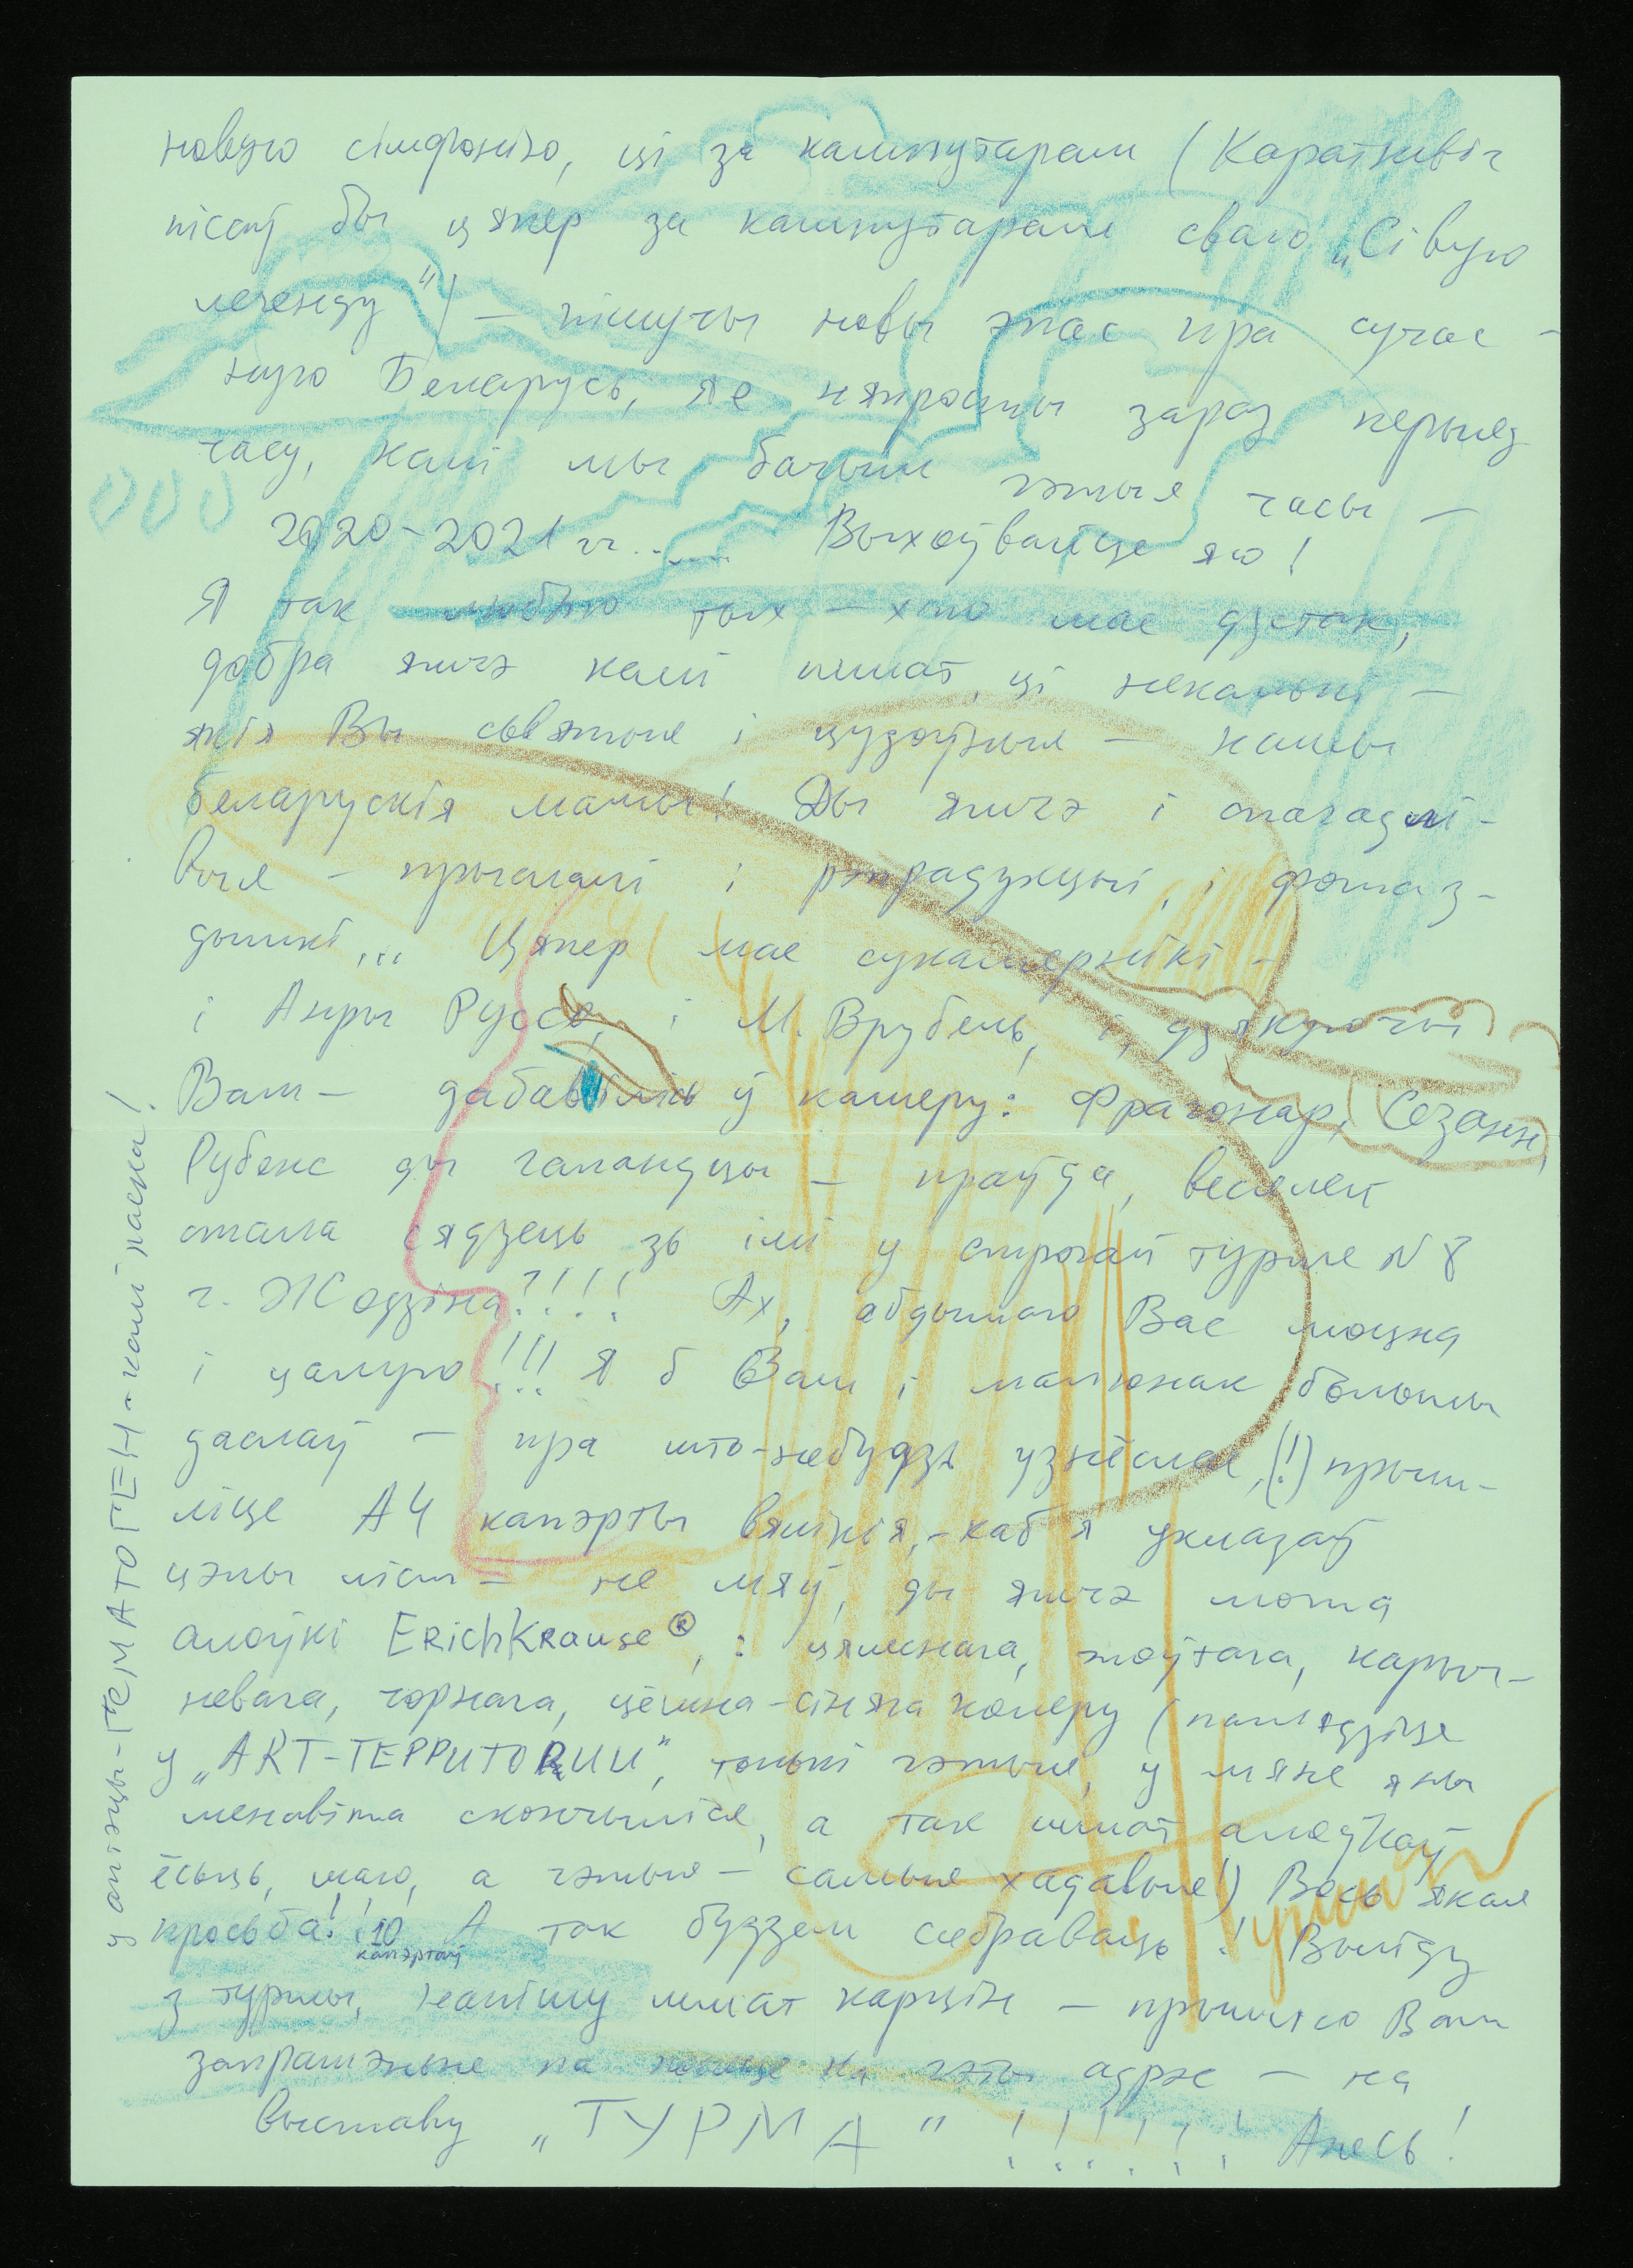 новую сімфонію, ці за кампутарам (Караткевіч
пісаў бы цяпер за кампутарам сваю „Сівую
легенду") — пішучы новы эпас пра сучас-
ную Беларусь, яе няпросты зараз перыяд
часу, калі мы бачым гэтыя часы —
2020-2021 гг...... Выхоўвайце яго!
Я так люблю тых — хто мае дзетак,
добра яшчэ калі шмат, ці некалькі —
якія Вы сьвятыя і цудоўныя — нашы
беларускія мамы! Ды яшчэ і спагадлі-
выя — прыслалі і рэпрадукцыі, і фотаз-
дымкі... Цяпер мае сукамернікі —
і Анры Руссо, і М. Врубель, і, дзякуючы
Вам — дабавілісь ў камеру: Фрагонар, Сезанн,
Рубенс ды галандцы — праўда, веселей
стала сядзець зь імі у строгай турме N8
г. Жодзіна!!!! Ах, абдымаю Вас моцна
і цалую!!! Я б Вам і малюнак большы
даслаў — пра што-небудзь узнёслае, (!) прыш-
ліце А4 капэрты вялікія, - каб я укладаў
цэлы ліст — не мяў, ды яшчэ можа
алоўкі ErichKrause®, : цялеснага, жоўтага, карыч-
невага, чорнага, цёмна-сіняга колеру (паглядзіце
у „АRТ-ТЕРРИТОRИИ", толькі гэтыя, у мяне яны
менавіта скончыліся, а так шмат алоўкаў
ёсьць, маю, а гэтыя — самыя хадавыя!) Вось якая
просьба!! 10 А так будзем сябраваць! Выйду
капэртаў
з турмы, напішу шмат карцін — прышлю Вам
запрашэньне на гэты адрас — на
выставу „ТУРМА" !!!!!! Алесь!
у аптэцы-ГЕМАТОГЕН-калі ласка!